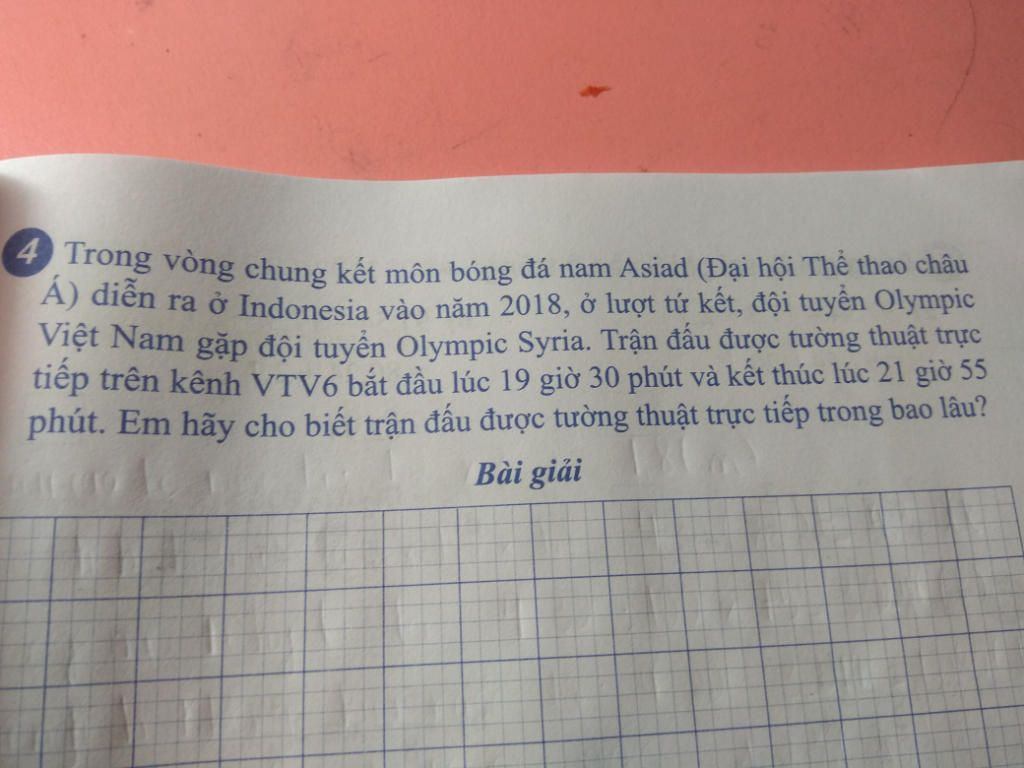 4 Trong vòng chung kết môn bóng đá nam Asiad (Đại hội Thể thao châu
Á) diễn ra ở Indonesia vào năm 2018, ở lượt tứ kết, đội tuyển Olympic
Việt Nam gặp đội tuyển Olympic Syria. Trận đấu được tường thuật trực
tiếp trên kênh VTV6 bắt đầu lúc 19 giờ 30 phút và kết thúc lúc 21 giờ 55
phút. Em hãy cho biết trận đấu được tường thuật trực tiếp trong bao lâu?
Bài giải